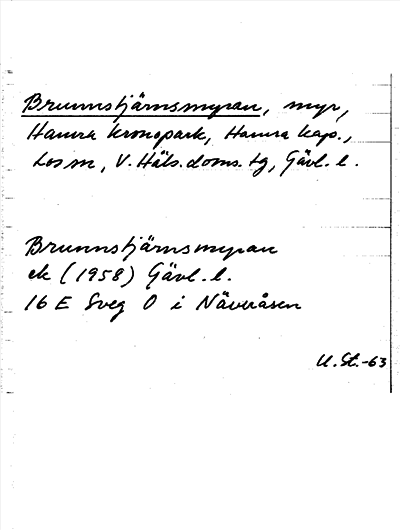 Brunnstjärnsmyran, myr,
Hamra kronopark, Hamra kap.,
Los sn, V. Häls. doms. tg, Gävl. l.
Brunnstjärnsmyran
ek (1958) Gävl. l.
16 E Sveg O i Näveråsen
U. St. -63